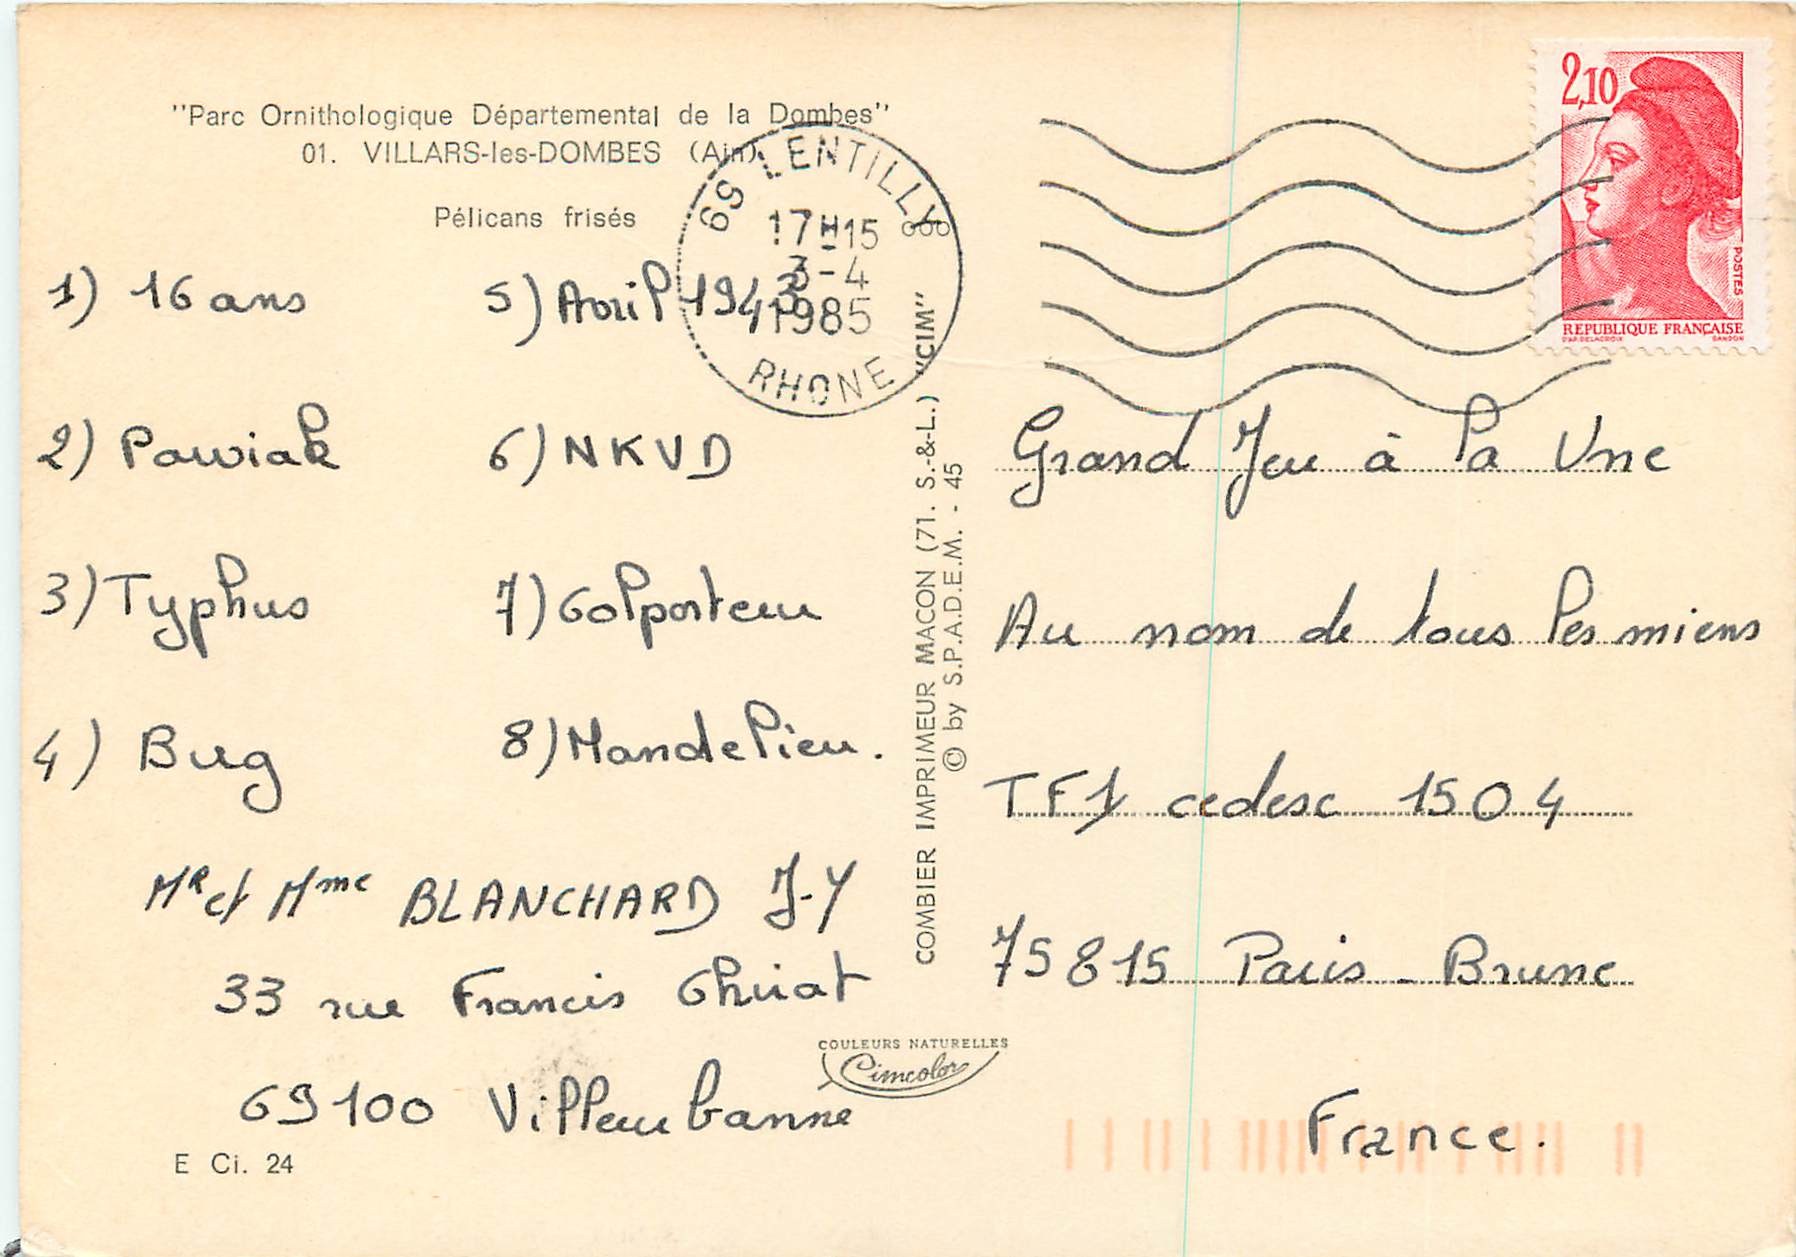 "Parc Ornithologique Départemental de la Dombes"
01. VILLARS-les-DOMBES (Ain)
Pélicans frisés
69 LENTILLY
17H15
3-4
1985
RHONE
2,10
POSTES
REPUBLIQUE FRANÇAISE
D'AP. DELACROIX GANDON
1) 16 ans
2) Pawiak
3) Typhus
4) Bug
5) Avril 1943
6) NKVD
7) Colporteur
8) Mandelieu.
Mr et Mme BLANCHARD J-Y
33 rue Francis Chirat
69100 Villeurbanne
E Ci. 24
COMBIER IMPRIMEUR MACON (71. S.-&-L.) "CIM"
© by S.P.A.D.E.M. - 45
COULEURS NATURELLES
Cimcolor
Grand Jeu à la Une
Au nom de tous les miens
TF1 cedesc 1504
75815 Paris - Brune
France.